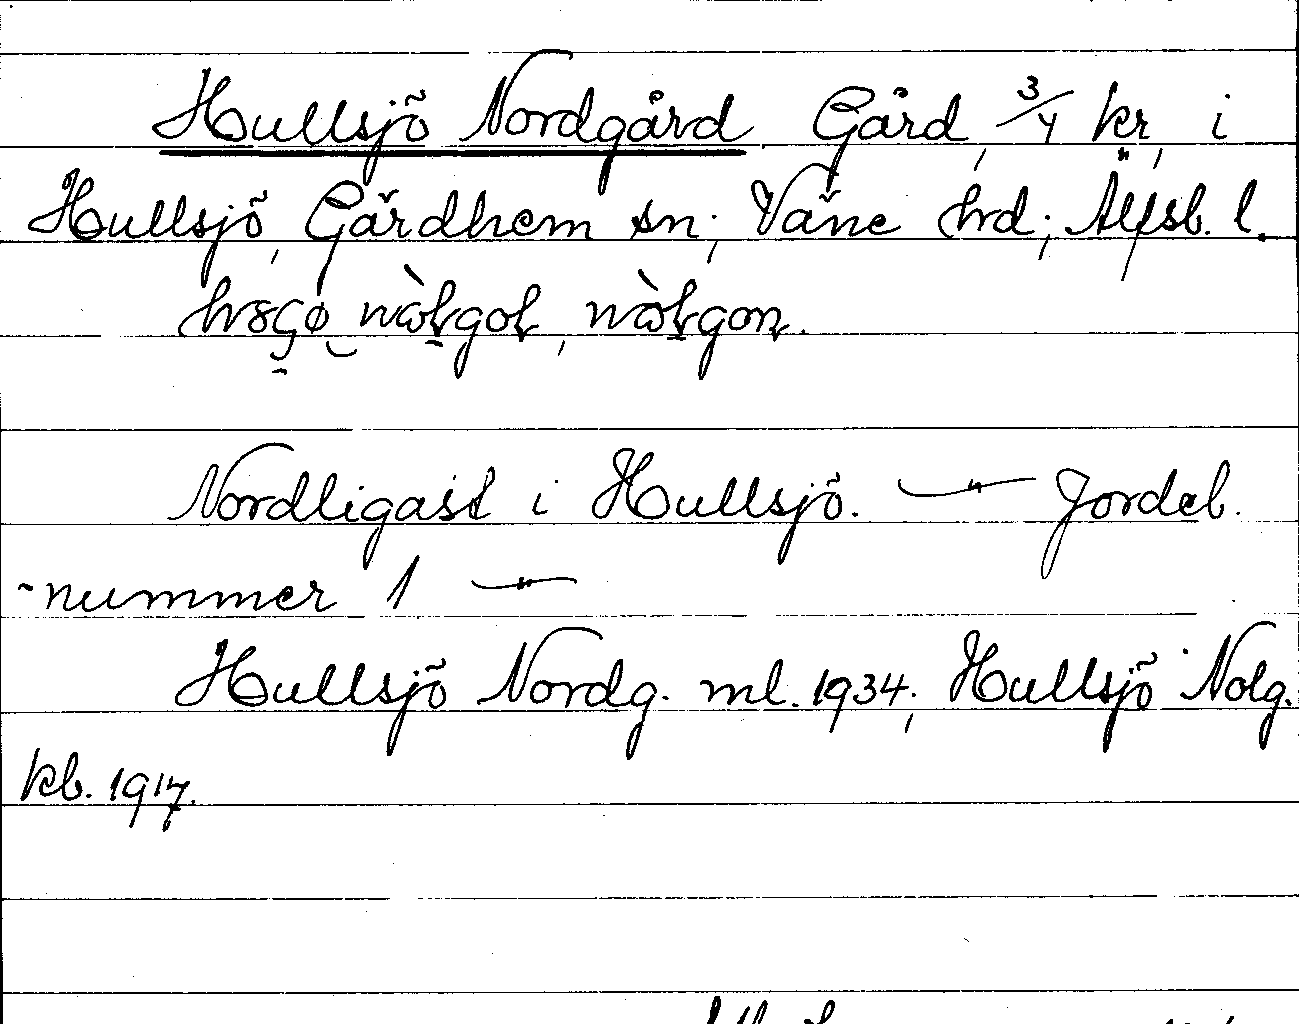 Hullsjö Nordgård Gård, 3/4 kr, i
Hullsjö, Gärdhem sn; Väne hrd; Älfsb. l.
Nordligast i Hullsjö. — Jordeb.
-nummer 1 —
Hullsjö Nordg. ml. 1934; Hullsjö Nolg.
kb. 1917.